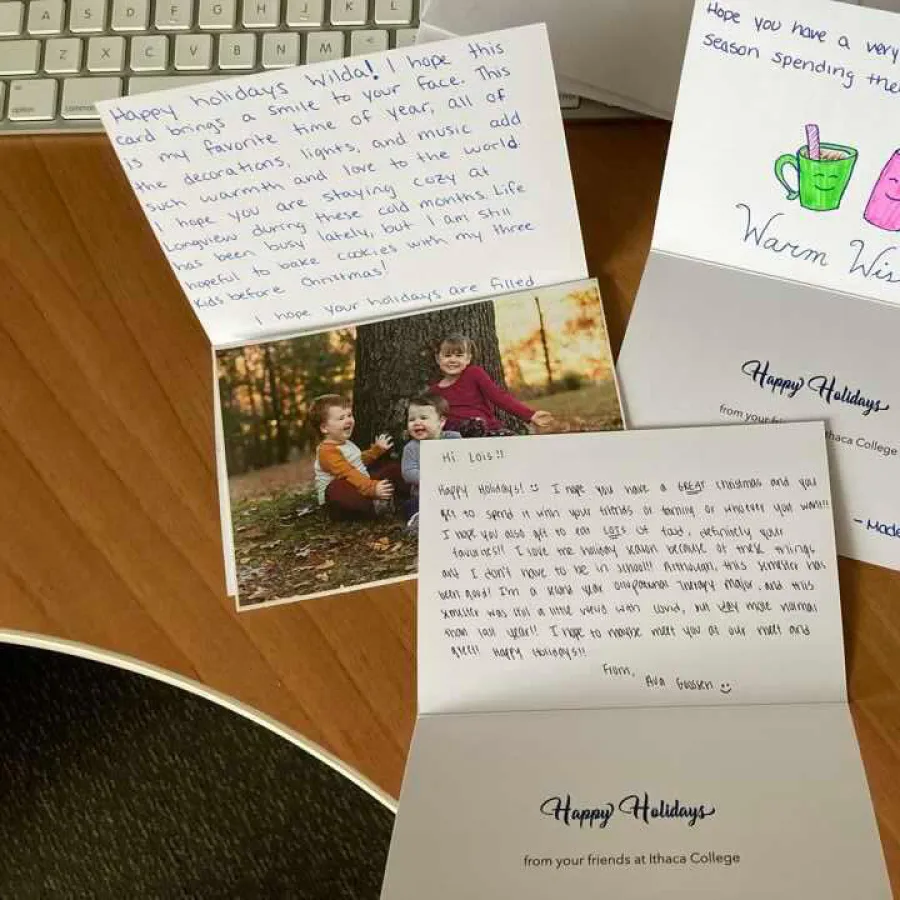 A S D F G H J K L
Z X C V B N M <
option
Happy holidays Wilda! I hope this
card brings a smile to your face. This
is my favorite time of year, all of
the decorations, lights, and music add
such warmth and love to the world.
I hope you are staying cozy at
Longview during these cold months. Life
has been busy lately, but I am still
hopeful to bake cookies with my three
kids before Christmas!
I hope your holidays are filled
Hope you have a very
season spending
Warm
Happy Holidays
from your
Ithaca College
- Made
Hi Lois!!
Happy Holidays! I hope you have a GREAT christmas and you
get to spend it with your friends or family or whoever you want!!
I hope you also get to eat LOTS of food, definitely your
favorites!! I love the holiday season because of these things
and I don't have to be in school!! Although, this semester has
been good! I'm a second year occupational therapy major, and this
semester was still a little weird with covid, but way more normal
than last year!! I hope to maybe meet you at our meet and
greet! Happy Holidays!!
From,
Ava
Happy Holidays
from your friends at Ithaca College